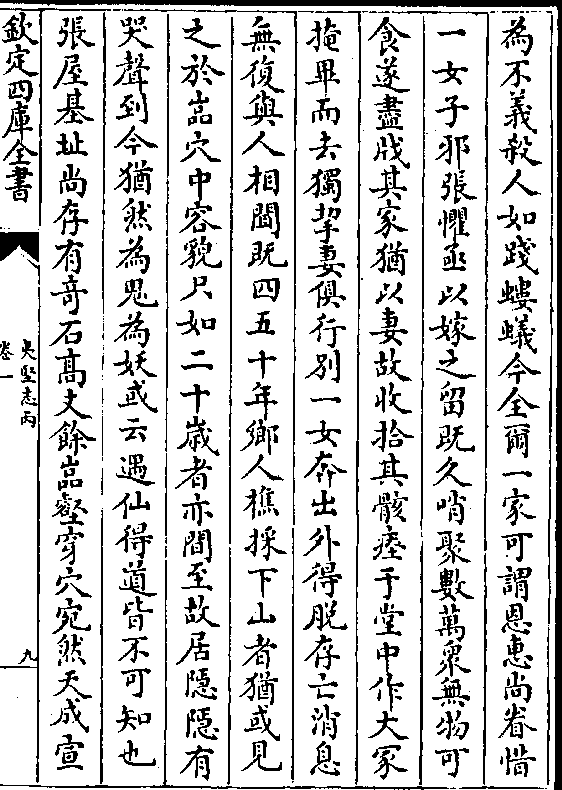 為不義殺人如踐螻蟻今全爾一家可謂恩恵尚眷惜
一女子邪張懼亟以嫁之留既久哨聚數萬衆無物可
食遂盡戕其家猶以妻故收拾其骸瘞于堂中作大冢
掩畢而去獨挈妻俱行别一女奔出外得脱存亡消息
無復與人相聞既四五十年鄉人樵採下山者猶或見
之於嵓穴中容貌只如二十歳者亦間至故居隠隠有
哭聲到今猶然為鬼為妖或云遇仙得道皆不可知也
張屋基址尚存有竒石髙丈餘嵓壑穿穴宛然天成宣
欽定四庫全書
夷堅志丙
卷一
九